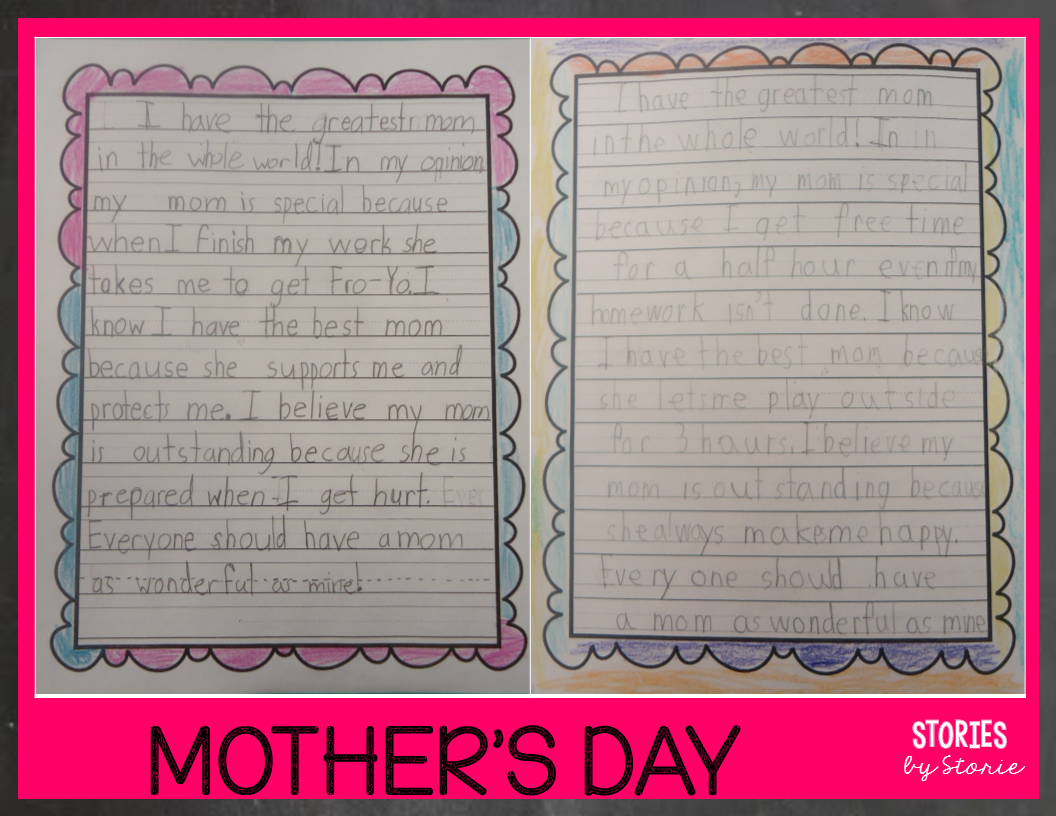 I have the greatest mom
in the whole world! In my opinion
my mom is special because
when I finish my work she
takes me to get Fro-Yo. I
know I have the best mom
because she supports me and
protects me. I believe my mom
is outstanding because she is
prepared when I get hurt. Ever
Everyone should have a mom
as wonderful as mine!
I have the greatest mom
in the whole world! In in
my opinion, my mom is special
because I get free time
for a half hour even if my
homework isn't done. I know
I have the best mom because
she lets me play outside
for 3 hours. I believe my
mom is outstanding because
she always make me happy.
Every one should have
a mom as wonderful as mine
MOTHER'S DAY
STORIES
by Storie